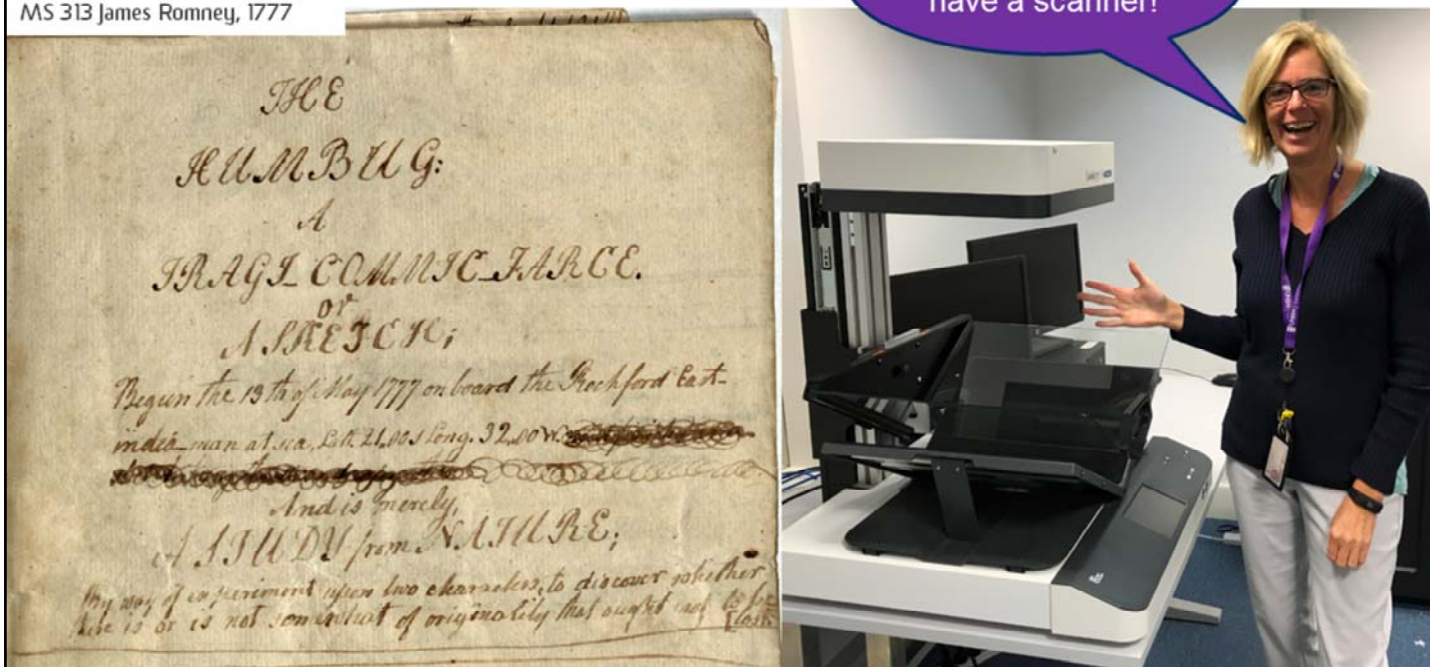 MS 313 James Romney, 1777
have a scanner!
THE
HUMBUG:
A
TRAGI_COMMIC_FARCE.
or
A SKETCH;
Begun the 19th of May 1777 on board the Rochford East-
india_man at sea, Latt. 21,00 s Long. 32,00 W.
And is merely,
A STUDY from NATURE;
By way of experiment upon two characters, to discover whether
there is or is not somewhat of originality that ought not to be